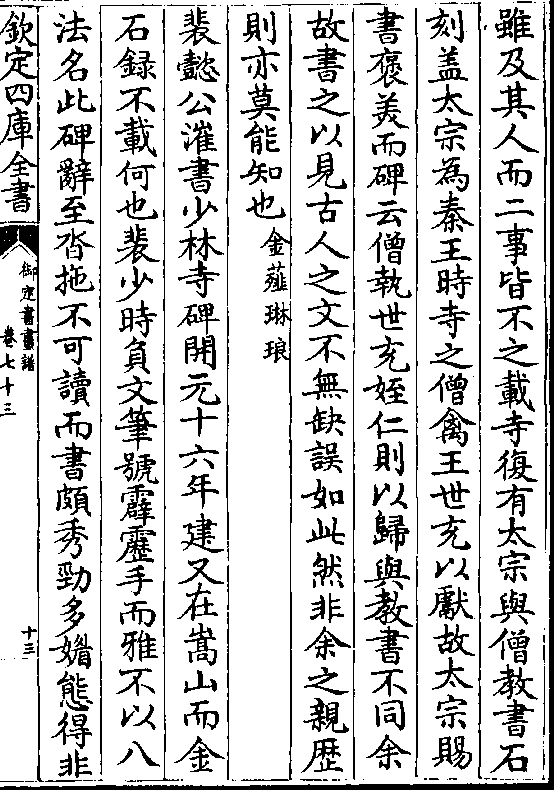 雖及其人而二事皆不之載寺復有太宗與僧教書石
刻盖太宗為秦王時寺之僧禽王世充以獻故太宗賜
書褒美而碑云僧執世充姪仁則以歸與教書不同余
故書之以見古人之文不無缺誤如此然非余之親歴
則亦莫能知也金薤琳琅
裴懿公漼書少林寺碑開元十六年建又在嵩山而金
石録不載何也裴少時負文筆號霹靂手而雅不以八
法名此碑辭至沓拖不可讀而書頗秀勁多媚態得非
欽定四庫全書
御定書畫譜
卷七十三
十三